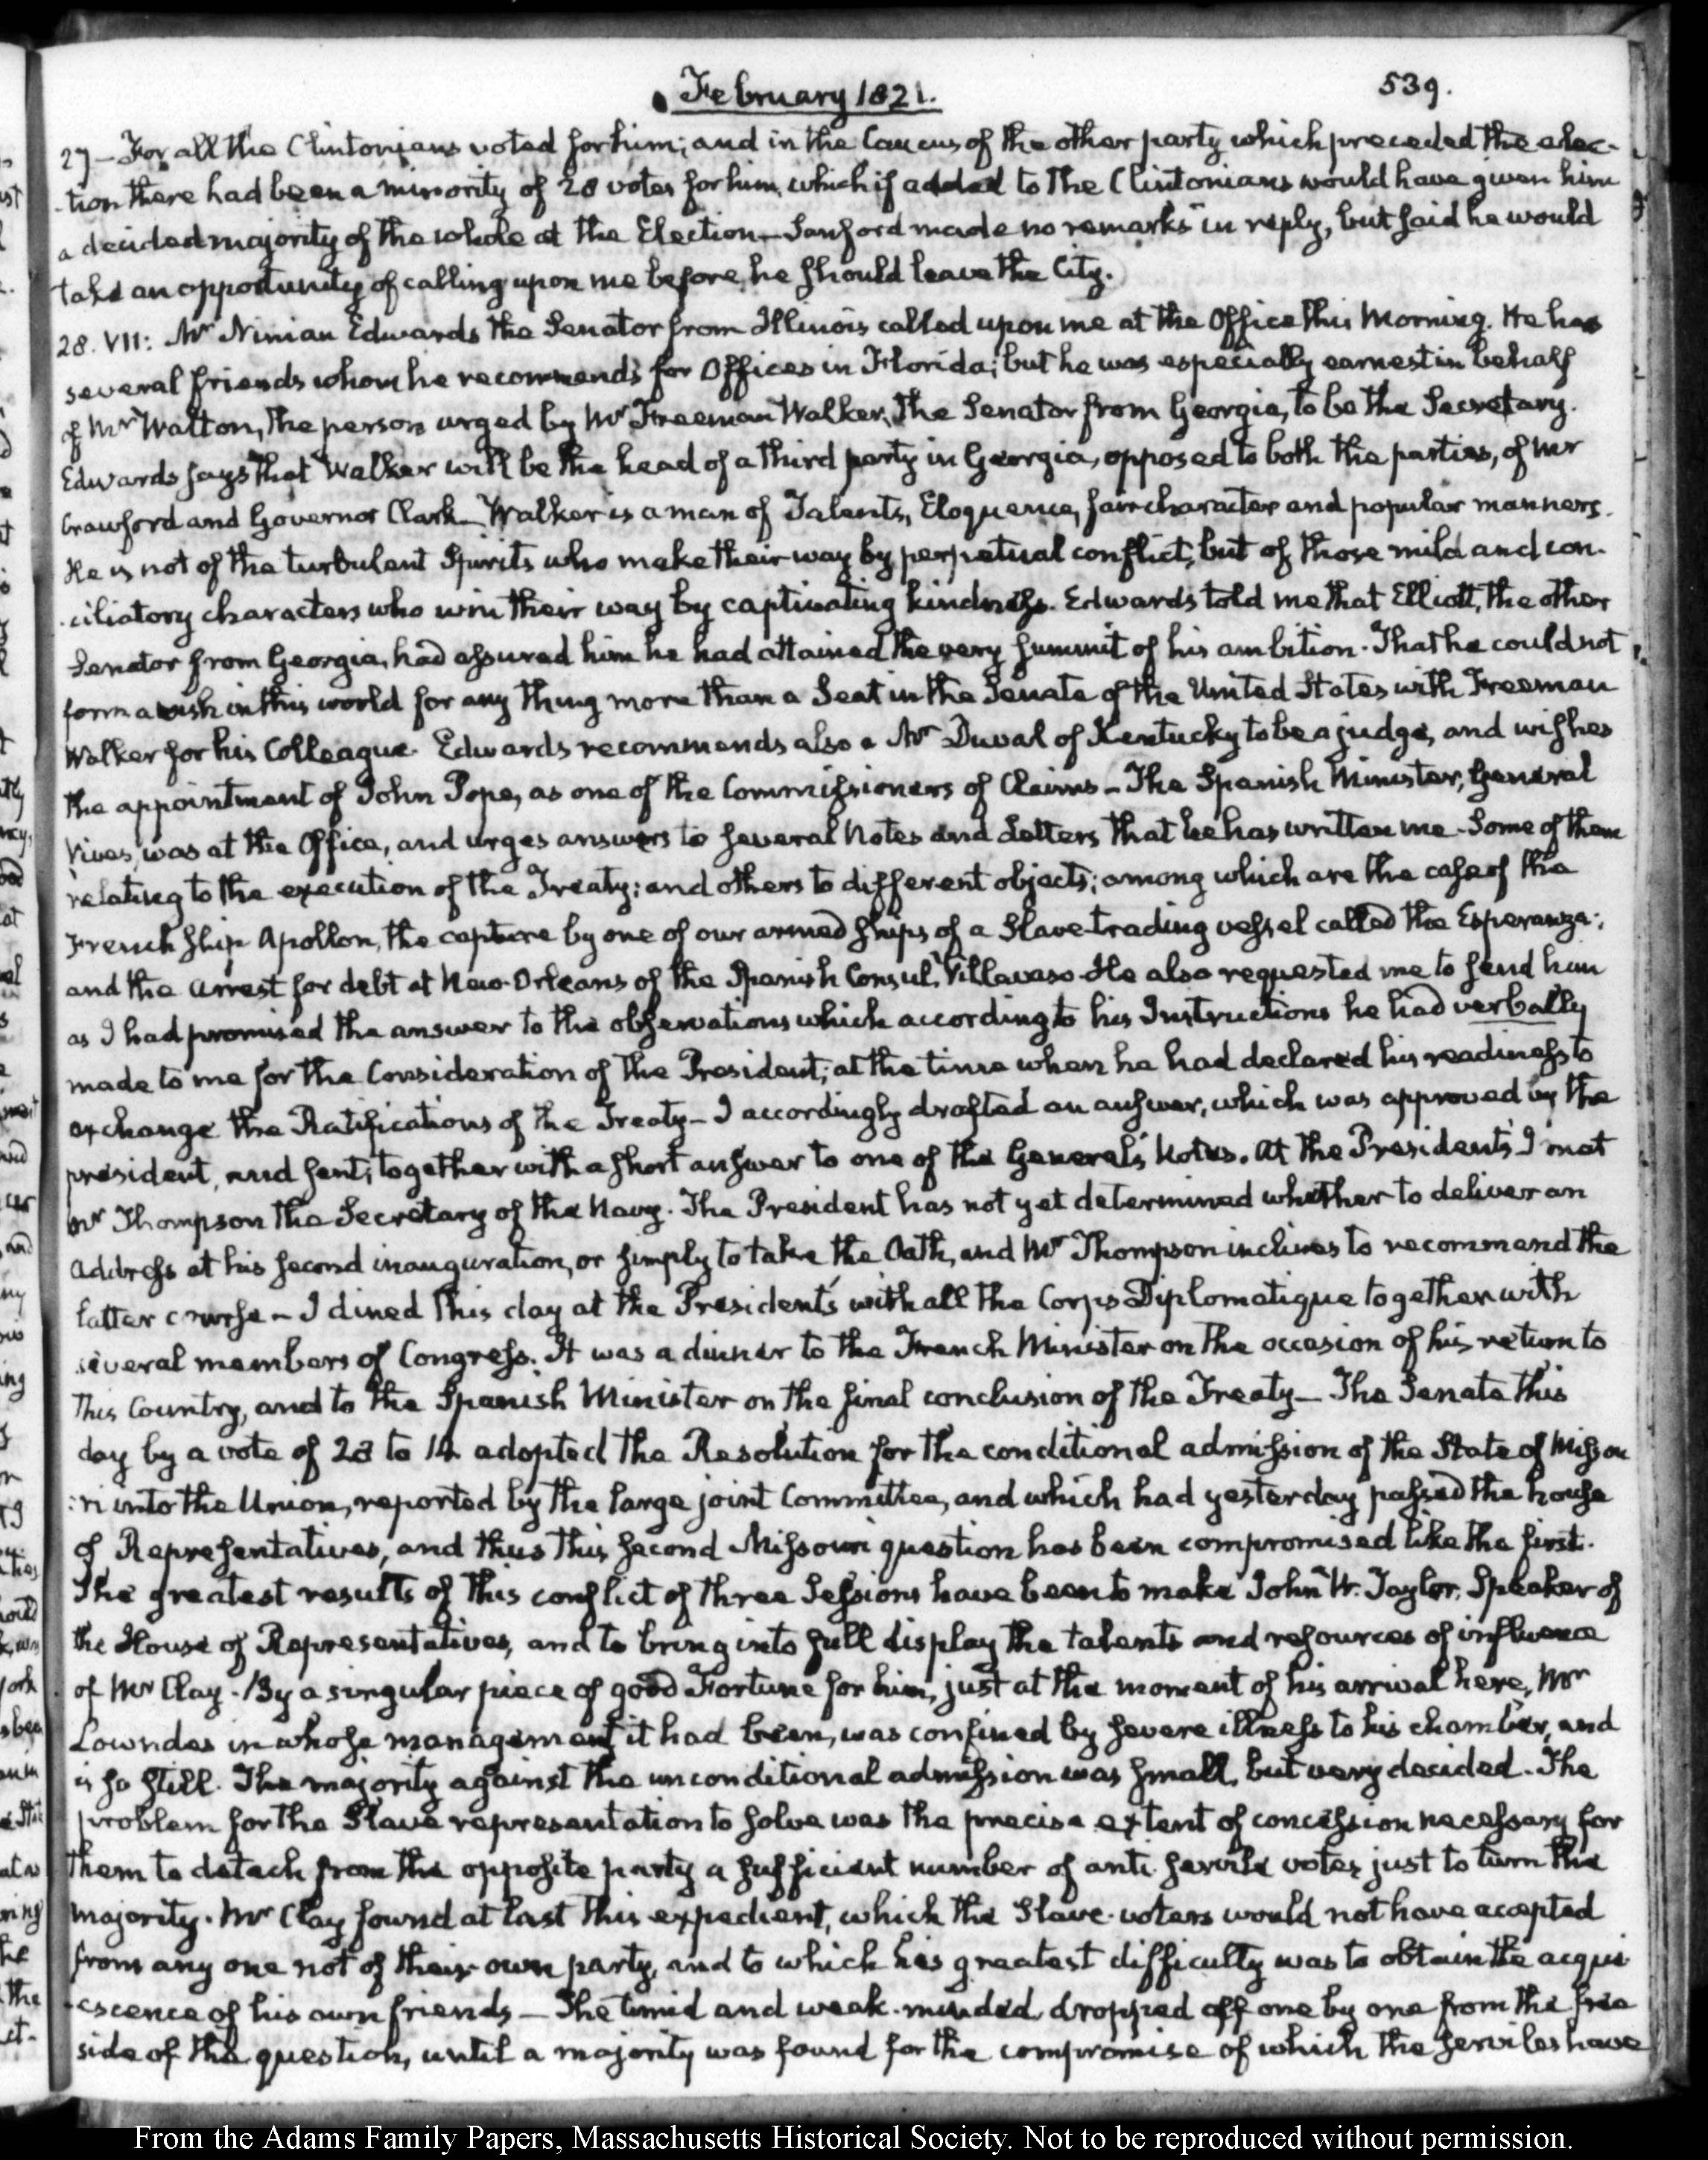 February 1821.
539.
27 — For all the Clintonians voted for him; and in the Caucus of the other party which preceded the elec-
-tion there had been a minority of 28 votes for him, which if added to the Clintonians would have given him
a decided majority of the whole at the Election — Sanford made no remarks in reply, but said he would
take an opportunity of calling upon me before he should leave the City.
28. VII: Mr Ninian Edwards the Senator from Illinois called upon me at the Office this Morning. He has
several friends whom he recommends for Offices in Florida; but he was especially earnest in behalf
of Mr Walton, the person urged by Mr Freeman Walker, the Senator from Georgia, to be the Secretary.
Edwards says that Walker will be the head of a third party in Georgia, opposed to both the parties, of Mr
Crawford and Governor Clark — Walker is a man of Talents, Eloquence, fair character and popular manners.
He is not of the turbulent Spirits who make their way by perpetual conflict, but of those mild and con-
-ciliatory characters who win their way by captivating kindness. Edwards told me that Elliott, the other
Senator from Georgia, had assured him he had attained the very summit of his ambition. That he could not
form a wish in this world for any thing more than a Seat in the Senate of the United States with Freeman
Walker for his Colleague. Edwards recommends also a Mr Duval of Kentucky to be a judge, and wishes
the appointment of John Pope, as one of the Commissioners of Claims — The Spanish Minister, General
Vives, was at the Office, and urges answers to several Notes and Letters that he has written me. Some of them
relating to the execution of the Treaty; and others to different objects; among which are the case of the
French ship Apollon, the capture by one of our armed ships of a Slave-trading vessel called the Esperanza;
and the arrest for debt at New-Orleans of the Spanish Consul, Villavaso. He also requested me to send him
as I had promised the answer to the observations which according to his Instructions he had verbally
made to me for the Consideration of the President; at the time when he had declared his readiness to
exchange the Ratifications of the Treaty — I accordingly drafted an answer, which was approved by the
president, and sent; together with a short answer to one of the General's Notes. At the President's I met
Mr Thompson the Secretary of the Navy. The President has not yet determined whether to deliver an
Address at his second inauguration, or simply to take the Oath, and Mr Thompson inclines to recommend the
latter course — I dined this day at the President's with all the Corps Diplomatique together with
several members of Congress. It was a dinner to the French Minister on the occasion of his return to
this Country, and to the Spanish Minister on the final conclusion of the Treaty — The Senate this
day by a vote of 28 to 14 adopted the Resolution for the conditional admission of the State of Missou
:ri into the Union, reported by the large joint Committee, and which had yesterday passed the house
of Representatives, and thus this second Missouri question has been compromised like the first.
The greatest results of this conflict of three Sessions have been to make John W. Taylor, Speaker of
the House of Representatives, and to bring into full display the talents and resources of influence
of Mr Clay. By a singular piece of good Fortune for him, just at the moment of his arrival here, Mr
Lowndes in whose management it had been, was confined by severe illness to his chamber, and
is so still. The majority against the unconditional admission was small, but very decided. The
problem for the Slave representation to solve was the precise extent of concession necessary for
them to detach from the opposite party a sufficient number of anti-servile votes just to turn the
majority. Mr Clay found at last this expedient, which the Slave-voters would not have accepted
from any one not of their own party, and to which his greatest difficulty was to obtain the acqui
-escence of his own friends — The timid and weak-minded dropped off one by one from the free
side of the question, until a majority was found for the compromise of which the serviles have
From the Adams Family Papers, Massachusetts Historical Society. Not to be reproduced without permission.